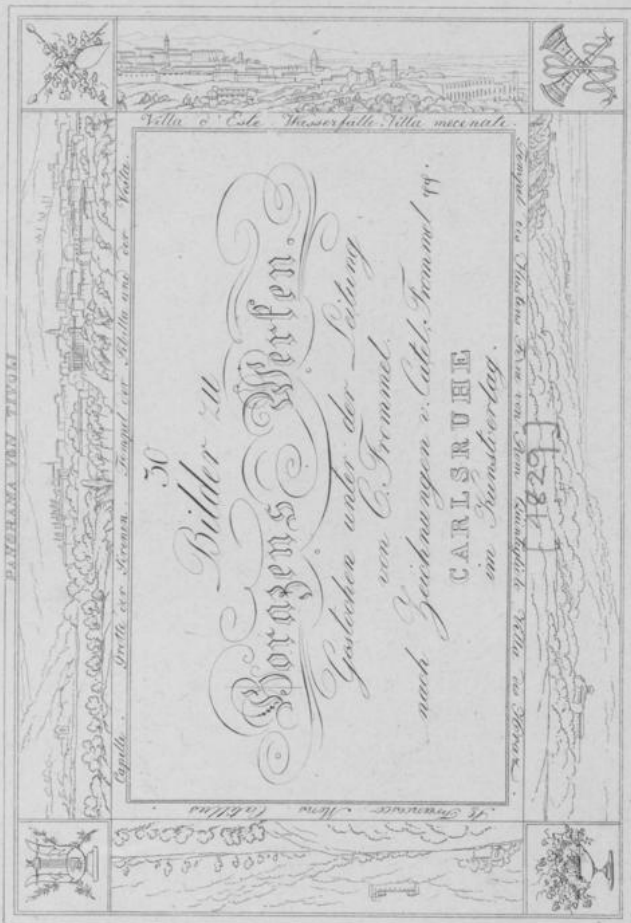 PANORAMA VON TIVOLI
Capelle. Grotte der Sirenen. Tempel der Sibilla und der Vesta.
Villa d'Este Wasserfälle. Villa mecenate.
30
Bilder zu
Horazens Werken.
Gestochen unter der Leitung
von C. Frommel.
nach Zeichnungen v. Catel, Frommel
CARLSRUHE
im Kunstverlag.
[1829]
Villa des Horaz.
S. Francesco Mons Catillus